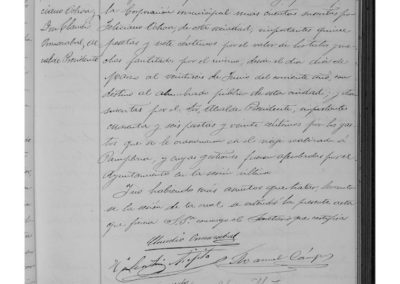 la Corporación municipal unas cuentas suscritas por
Feliciano Ochoa, de esta vecindad, importantes quince
pesetas y siete céntimos por el valor de
facilitado por el mismo, desde el día diez de
Marzo al veintiseis de Junio del corriente año, con
destino al alumbrado público de esta ciudad; y otra
suscrita por el Sr. Alcalde Presidente, importante
cincuenta y seis pesetas y veinte céntimos por los gas-
tos que se le ocasionaron en el viaje realizado á
Pamplona, y cuyas gestiones fueron aprobadas por el
Ayuntamiento en la sesión última.
Y no habiendo más asuntos que tratar, levantó-
se la sesión de la cual se extiende la presente acta
que firma S.S. conmigo el Secretario que certifico
ciano Ochoa,
Don Claudio
Ormazabal, Al-
calde Presidente
Claudio Ormazabal
Manuel